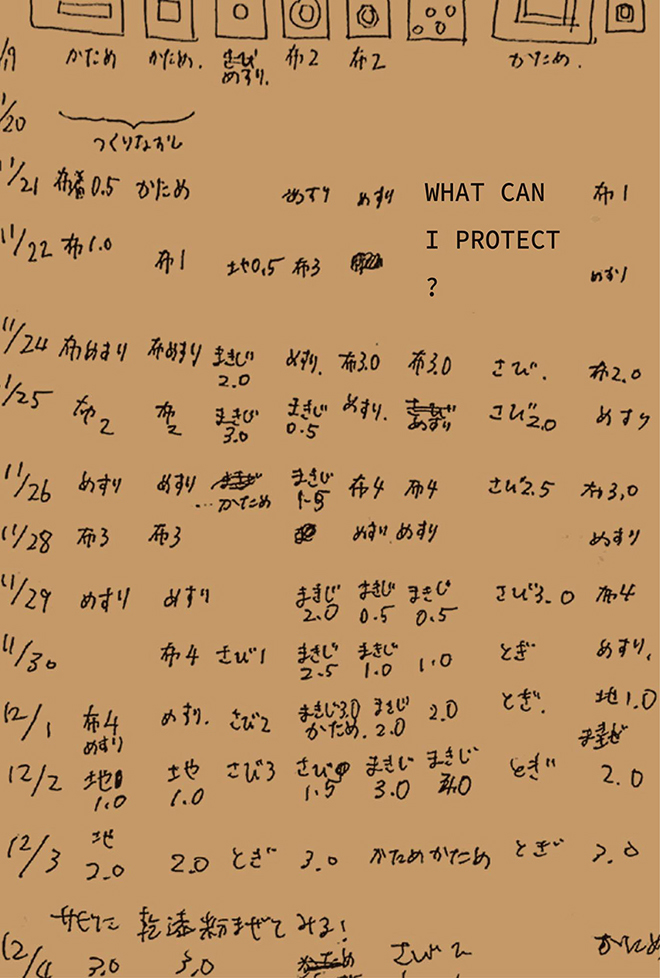 かため かため. めすり. 布2 布2 かため.
つくりなおし
11/21 布着0.5 かため めすり めすり 布1
WHAT CAN
I PROTECT
?
11/22 布1.0 布1 地0.5 布3 めすり
11/24 布めすり 布めすり まきじ 2.0 めすり. 布3.0 布3.0 さび. 布2.0
1/25 布2 布2 まきじ 3.0 まきじ 0.5 めすり. めすり さび2.0 めすり
11/26 めすり めすり …かため まきじ 1.5 布4 布4 さび2.5 布3.0
11/28 布3 布3 めすり めすり めすり
11/29 めすり めすり まきじ 2.0 まきじ 0.5 まきじ 0.5 さび3.0 布4
11/30 布4 さび1 まきじ 2.5 まきじ 1.0 1.0 とぎ めすり.
12/1 布4 めすり めすり. さび2 まきじ3.0 かため. まきじ 2.0 2.0 とぎ. 地1.0
12/2 地 1.0 地 1.0 さび3 さび 1.5 まきじ 3.0 まきじ とぎ まきじ 2.0
12/3 地 2.0 2.0 とぎ 3.0 かため かため とぎ 3.0
サビに 乾漆粉まぜてみる!
12/4 3.0 3.0 さび2 かため